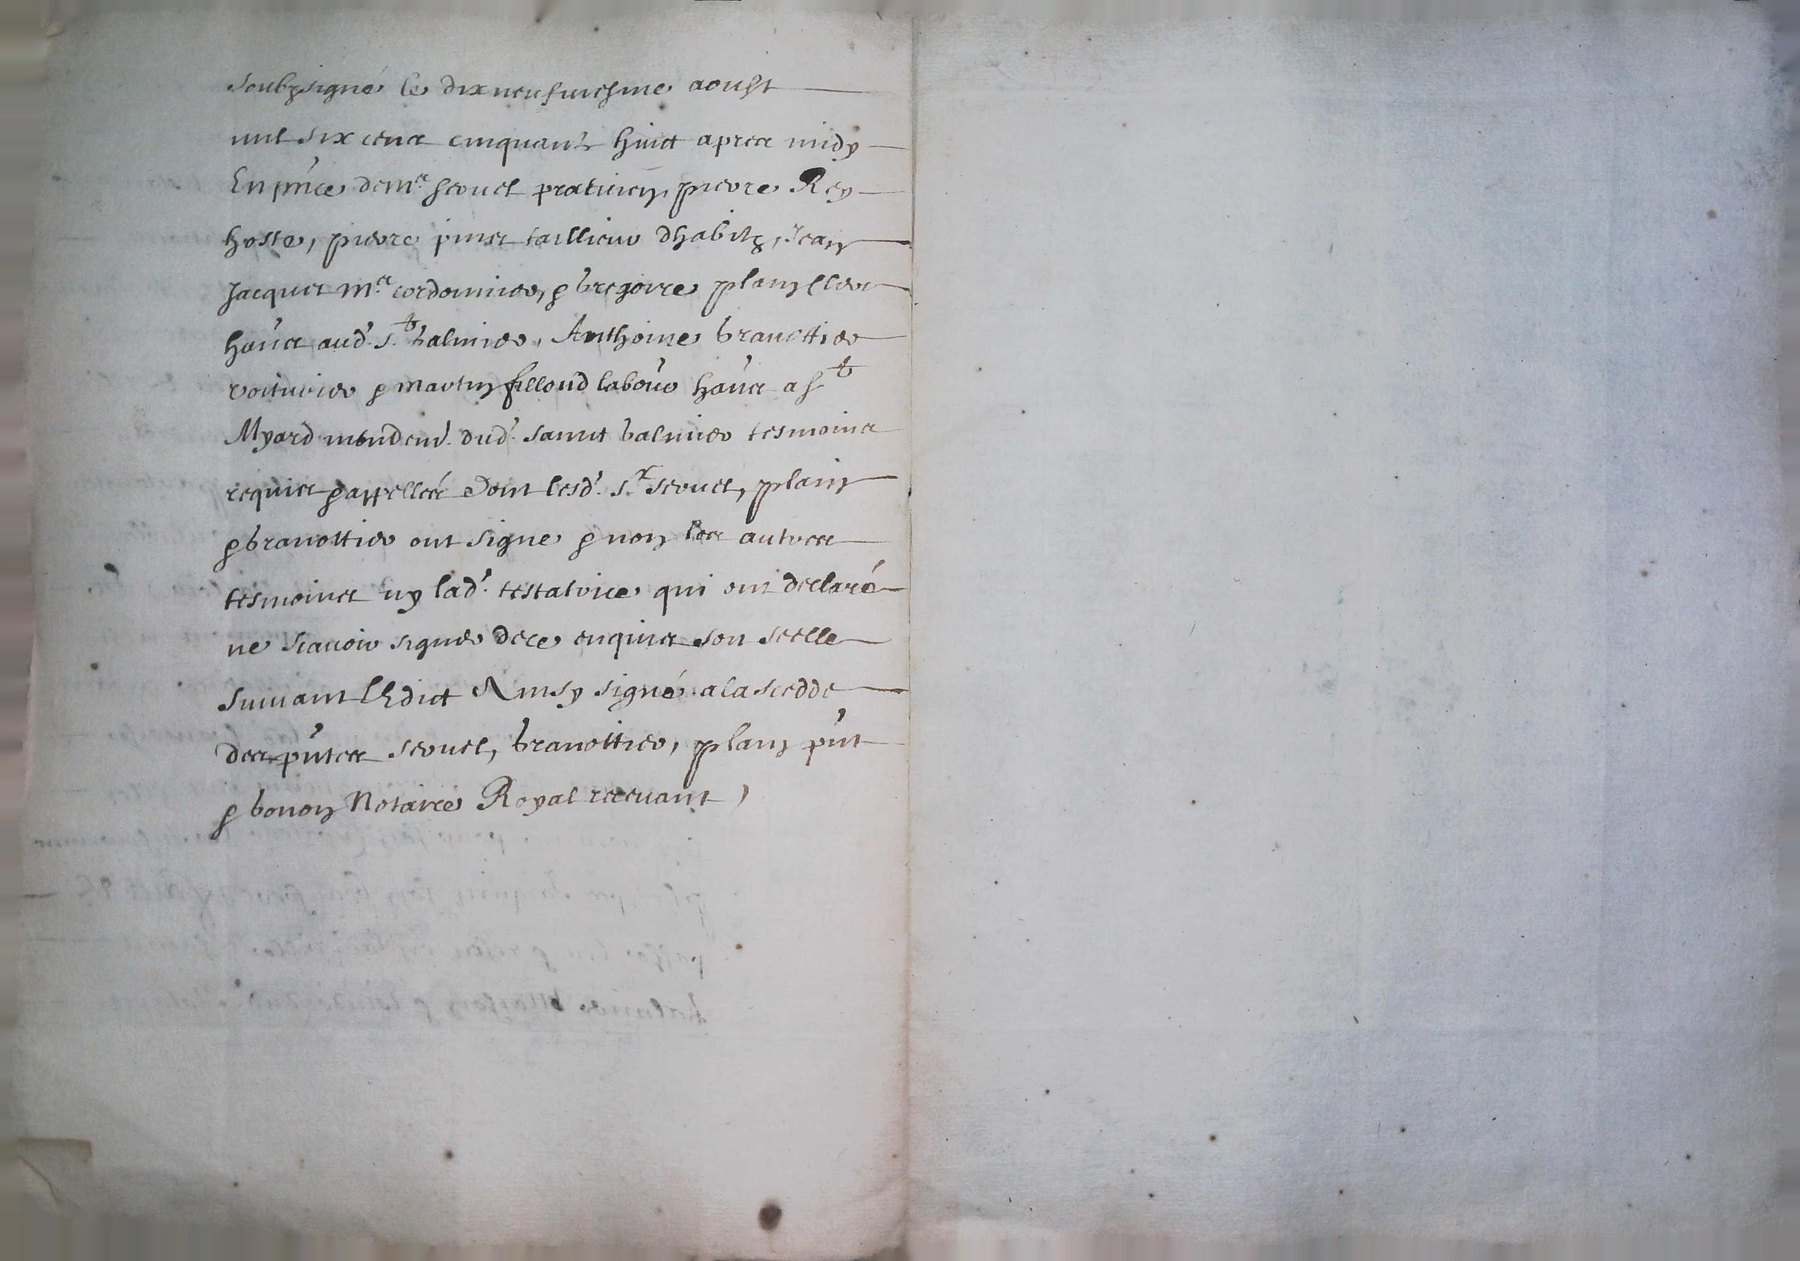 soubzsigné le dix neufviesme aoust
mil six cens cinquante huict apres midy
En pnce de me seruel praticien, pierre Rey
hoste, pierre pinet taillieur dhabitz, Jean
Jacquet me cordonnier, & gregoire plan clerc
hants aud. st balmier, Anthoine brauottier
voiturier & martin filloud labour hants a st
Myard mendemt dud. sainct balmier tesmoins
requis & appellés Dont lesd. sr seruel, plan
& brauottier ont signé & non les autres
tesmoins ny lad. testatrice qui ont declaré
ne scauoir signer de ce enquis soit scellé
suiuant lEdict Ainsy signé a la scedde
des pntes seruel, brauottier, plan pnt
& bonon Notaire Royal receuant